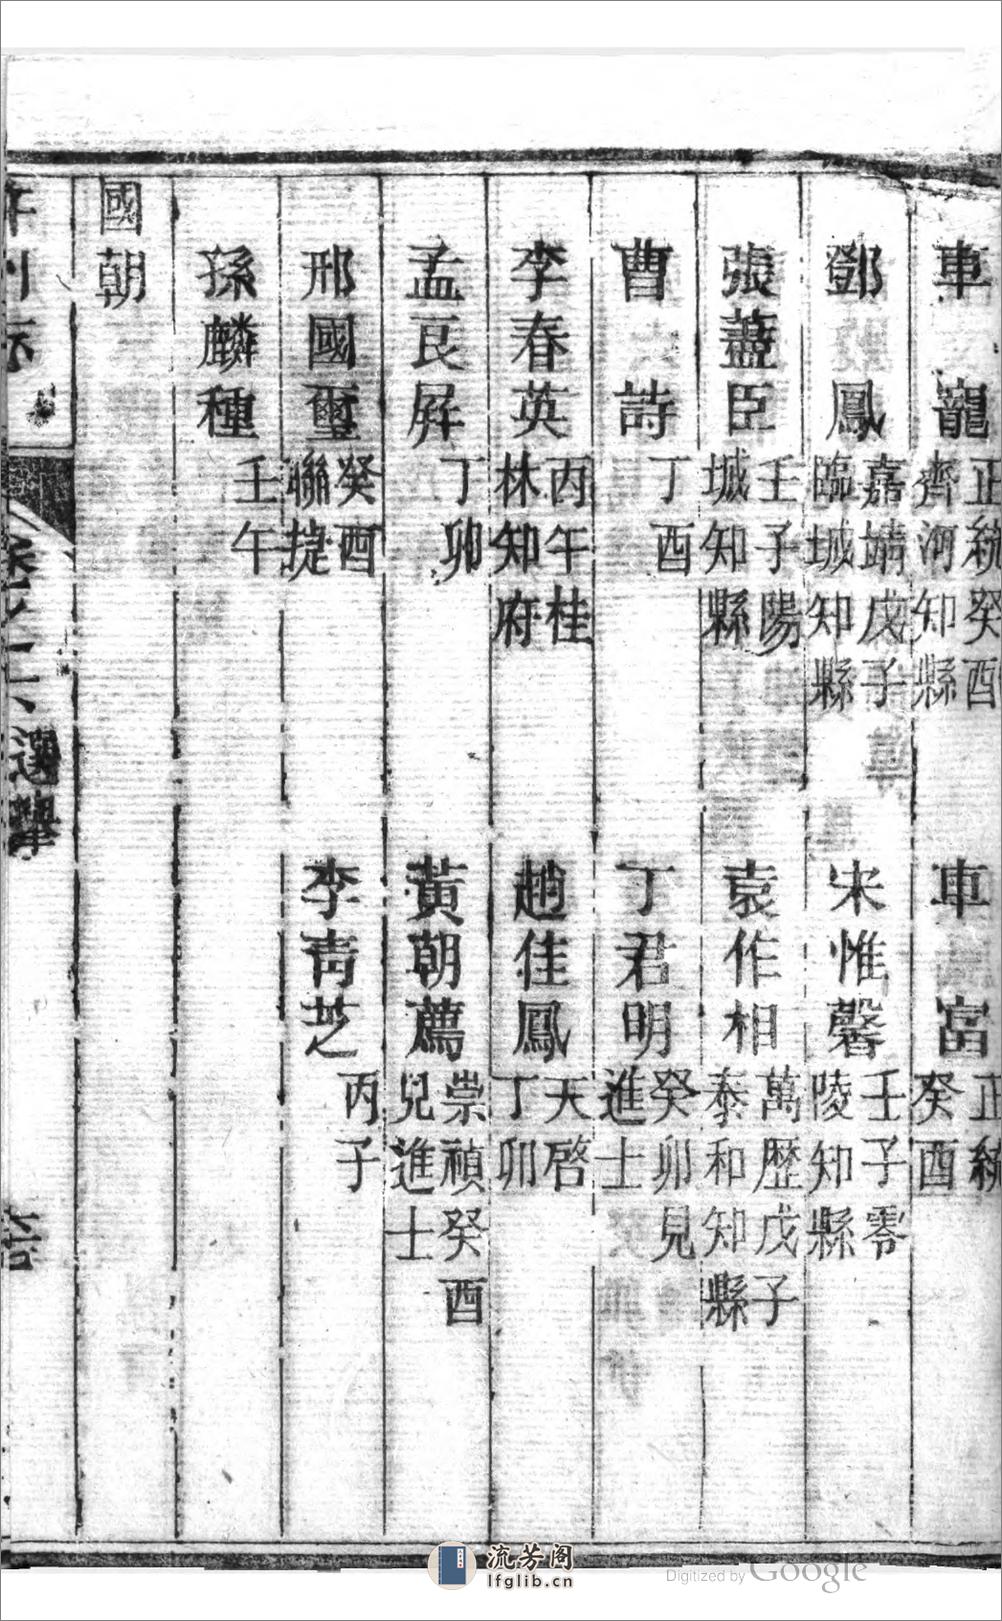 車寵 正統癸酉齊河知縣 車富 正統癸酉
鄧鳳 嘉靖戊子臨城知縣 宋惟馨 壬子零陵知縣
張藎臣 壬子陽城知縣 袁作相 萬歷戊子泰和知縣
曹詩 丁酉 丁君明 癸卯見進士
李春英 丙午桂林知府 趙佳鳳 天啓丁卯
孟良屛 丁卯 黃朝薦 崇禎癸酉見進士
邢國璽 癸酉聯捷 李靑芝 丙子
孫麟種 壬午
國朝
卷之六 選舉
流芳阁
lfglib.cn
Digitized by Google